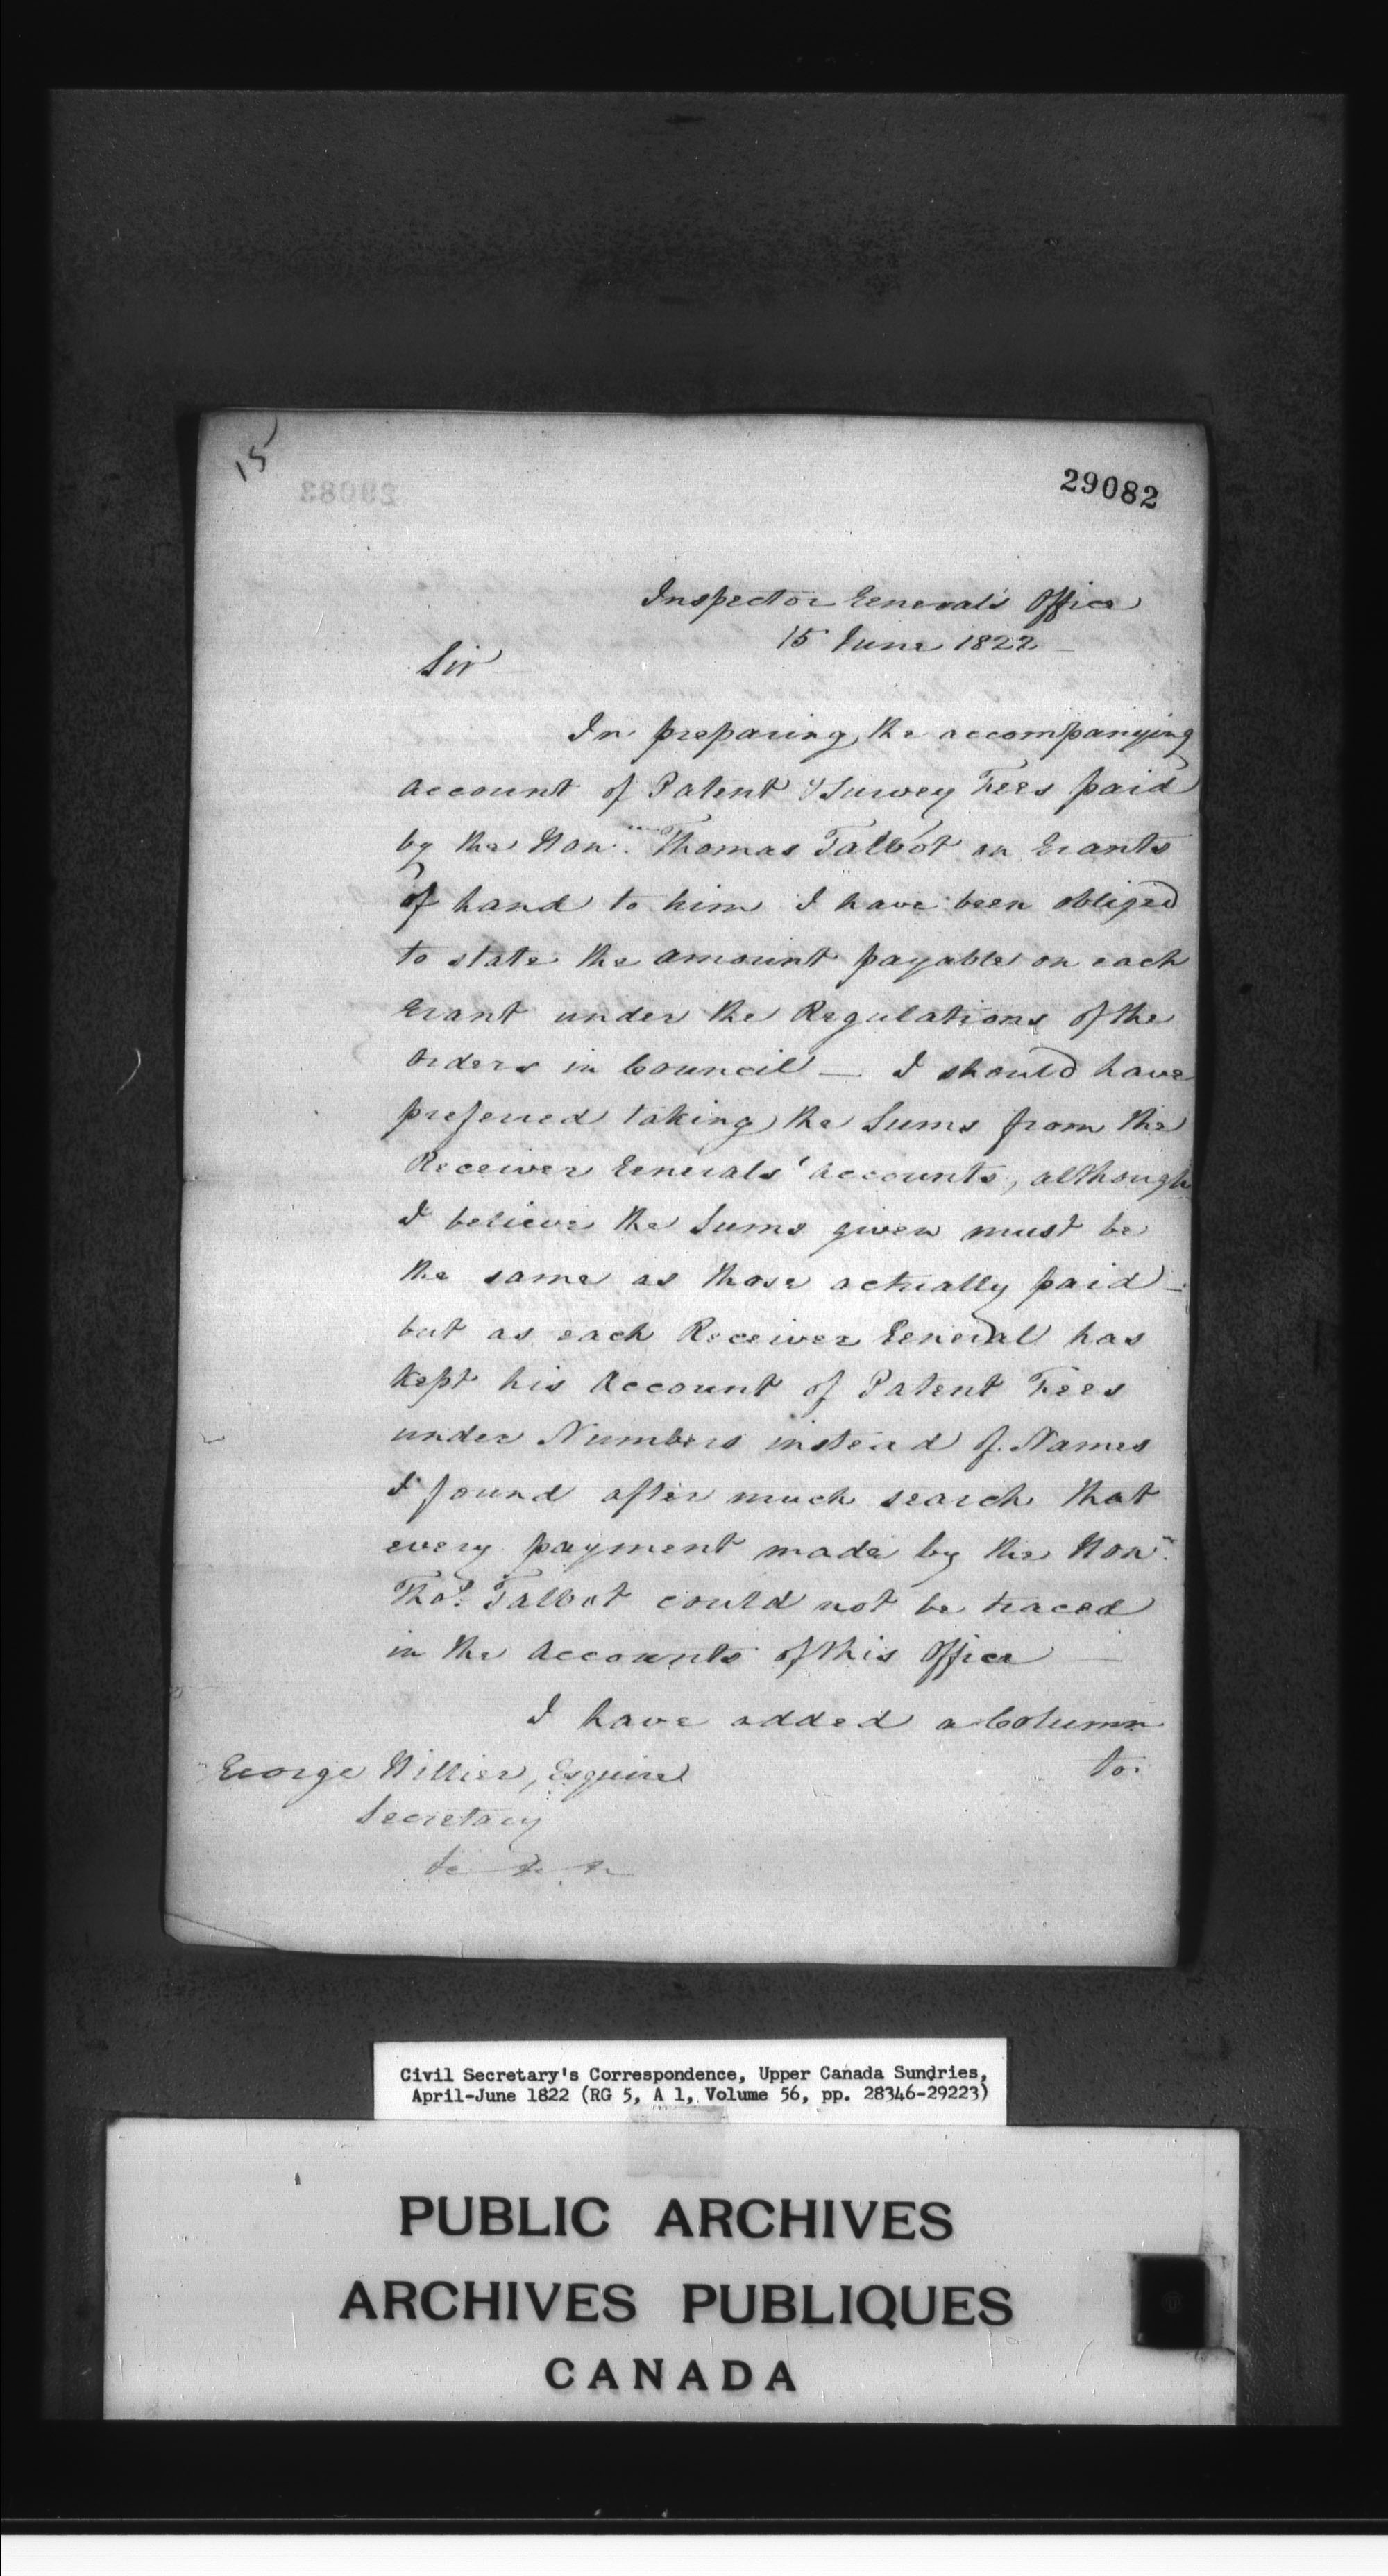 15
29082
29083
Inspector General's Office
15 June 1822 -
Sir
In preparing the accompanying
account of Patent & Survey Fees paid
by the Honble. Thomas Talbot on Grants
of land to him I have been obliged
to state the amount payable on each
Grant under the Regulations of the
Orders in Council — I should have
preferred taking the Sums from the
Receiver Generals' accounts, although
I believe the Sums given must be
the same as those actually paid -
but as each Receiver General has
kept his Account of Patent Fees
under Numbers instead of Names
I found after much search that
every payment made by the Hon.
Thos. Talbot could not be traced
in the Accounts of this Office —
I have added a Column
to
George Hillier, Esquire
Secretary
&c &c &c
Civil Secretary's Correspondence, Upper Canada Sundries,
April-June 1822 (RG 5, A 1, Volume 56, pp. 28346-29223)
PUBLIC ARCHIVES
ARCHIVES PUBLIQUES
CANADA